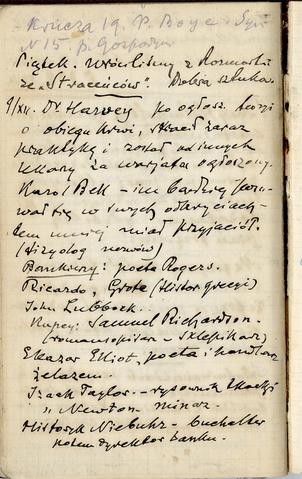 Krucza 19. P. Boye
N 15. p. Gospodyni
Piątek. Wróciliśmy z
ze „Straceńców". Dobra sztuka.
9/XII. Dr. Harvey po ogłosz. teorji
o obiegu krwi, stracił zaraz
praktykę i został od innych
lekarzy za warjata ogłoszony.
Karol Bell – im bardziej
się w swych odkryciach –
tem mniej miał przyjaciół.
(fizyolog nerwów)
Bankierzy: poeta Rogers.
Ricardo, Grote (Histor grecyi)
John Lubbock.
Kupcy: Samuel Richardson.
(romansopisarz – sklepikarz)
Eleazar Elliot, poeta i handlarz
żelazem.
Izaak Taylor – rysownik
„ Newton mincarz.
Historyk Niebuhr – buchalter
potem dyrektor banku.